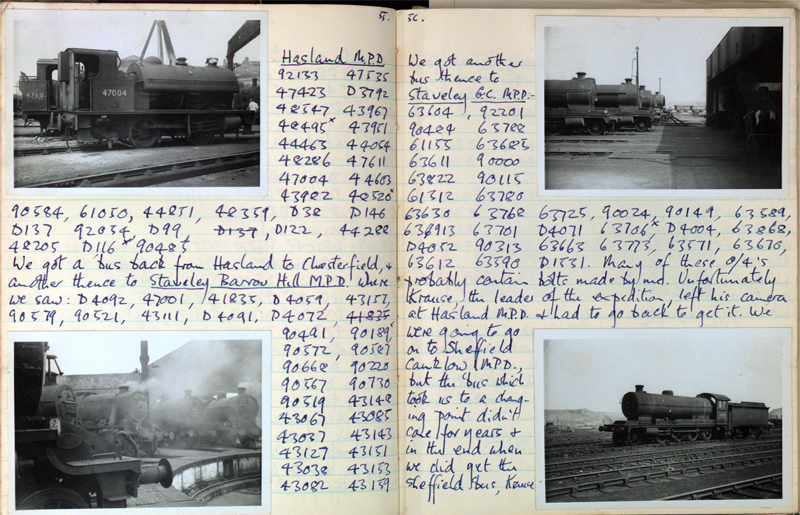 55.
Hasland M.P.D.
92133 47535
47423 D3792
48547 43967
48495x 43951
44463 44054
48286 47611
47004 44603
43982 48520x
90584, 61050, 44851, 48359, D38 D146
D137 92034, D99, D137, D122, 44288
48205 D116x 90485
We got a bus back from Hasland to Chesterfield, &
another thence to Staveley Barrow Hill M.P.D. where
we saw: D4092, 47001, 41835, D4059, 43157,
90579, 90521, 43111, D4091, D4072, 41835
90491, 90189
90572, 90587
90668 90220
90567 90730
90519 43148
43067 43085
43037 43143
43127 43151
43038 43153
43082 43159
47004
56.
We got another
bus thence to
Staveley G.C. M.P.D:-
63604, 92201
90484 63788
61155 63685
63611 90000
63822 90115
61312 63780
63630 63768 63725, 90024, 90149, 63589,
63893 63701 D4071 63706x D4004, 63868,
D4052 90313 63663 63773, 63571, 63670,
63612 63590 D1531. Many of these 04's
probably contain bolts made by me. Unfortunately
Krause, the leader of the expedition, left his camera
at Hasland M.P.D. & had to go back to get it. We
were going to go
on to Sheffield
Canklow M.P.D.,
but the bus which
took us to a chang-
ing point didn't
come for years &
in the end when
we did get the
Sheffield bus, Krause